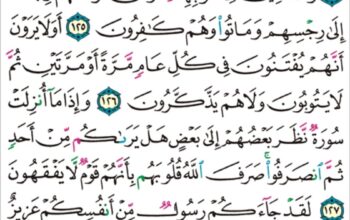 إِلَىٰ رِجْسِهِمْ وَمَاتُوا۟ وَهُمْ كَـٰفِرُونَ ١٢٥ أَوَلَا يَرَوْنَ
أَنَّهُمْ يُفْتَنُونَ فِى كُلِّ عَامٍ مَّرَّةً أَوْ مَرَّتَيْنِ ثُمَّ
لَا يَتُوبُونَ وَلَا هُمْ يَذَّكَّرُونَ ١٢٦ وَإِذَا مَآ أُنزِلَتْ
سُورَةٌ نَّظَرَ بَعْضُهُمْ إِلَىٰ بَعْضٍ هَلْ يَرَىٰكُم مِّنْ أَحَدٍ
ثُمَّ ٱنصَرَفُوا۟ صَرَفَ ٱللَّهُ قُلُوبَهُم بِأَنَّهُمْ قَوْمٌ لَّا يَفْقَهُونَ
١٢٧ لَقَدْ جَآءَكُمْ رَسُولٌ مِّنْ أَنفُسِكُمْ عَزِيزٌ